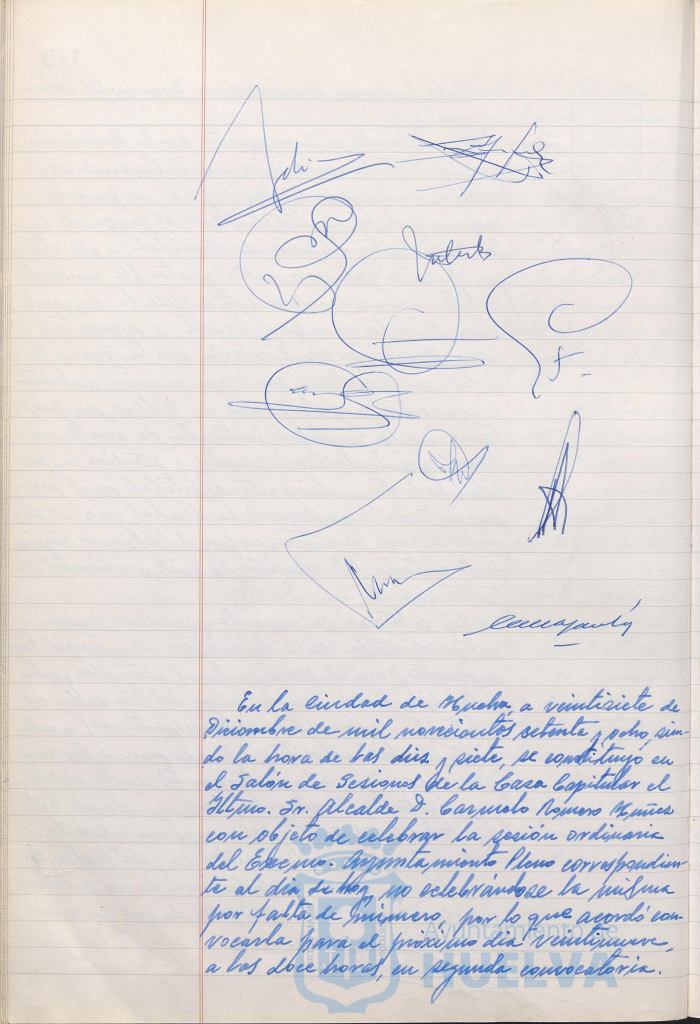 En la Ciudad de Huelva, a veintisiete de
Diciembre de mil novecientos setenta y ocho, sien-
do la hora de las diez y siete, se constituyó en
el Salón de Sesiones de la Casa Capitular el
Iltmo. Sr. Alcalde D. Carmelo Romero Núñez
con objeto de celebrar la sesión ordinaria
del Excmo. Ayuntamiento Pleno correspondien-
te al día de hoy, no celebrándose la misma
por falta de número, por lo que acordó con-
vocarla para el próximo día veintinueve,
a las doce horas, en segunda convocatoria.
Ayuntamiento de
HUELVA